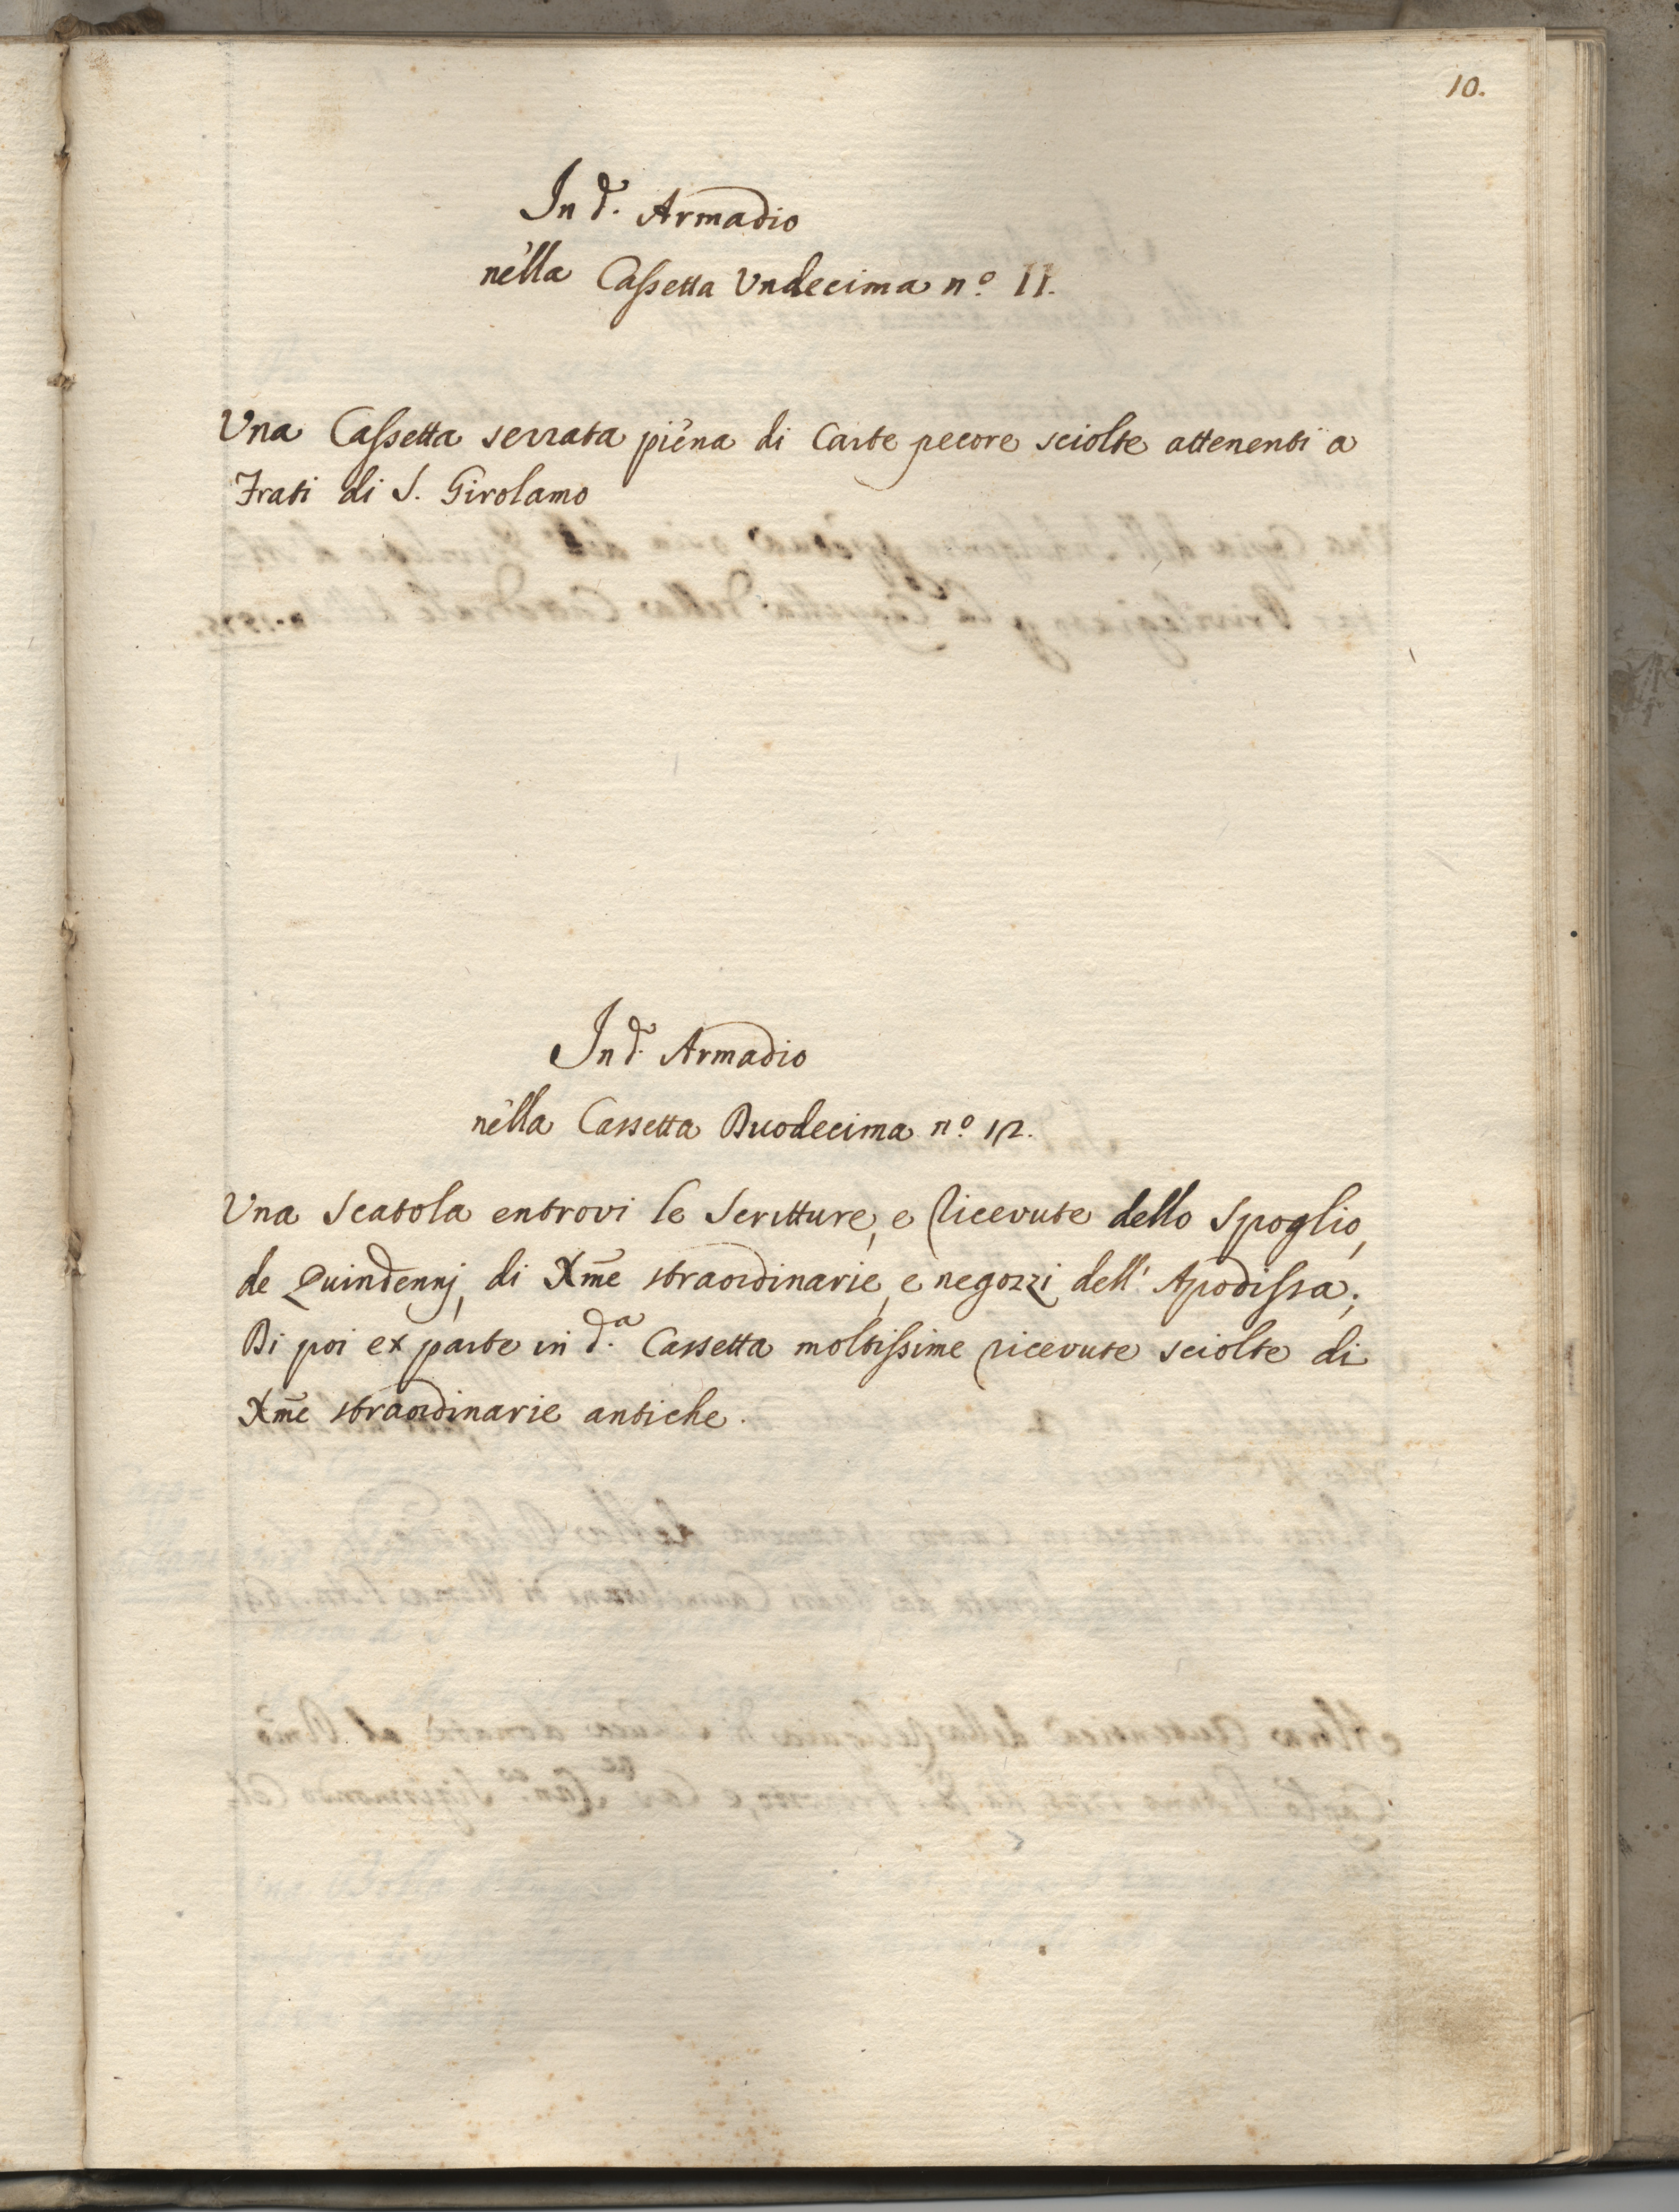 10.
In d.º Armadio
nella Cassetta Undecima nº. 11.
Una Cassetta serrata piena di Carte pecore sciolte attenenti a
Frati di S. Girolamo
In d.º Armadio
nella Cassetta Duodecima nº. 12.
Una Scatola entrovi le Scritture, e Ricevute dello Spoglio,
de Quindennj, di Xme straordinarie, e negozzi dell' Apodissa;
Di poi ex parte in d.ª Cassetta moltissime ricevute sciolte di
Xme straordinarie antiche.